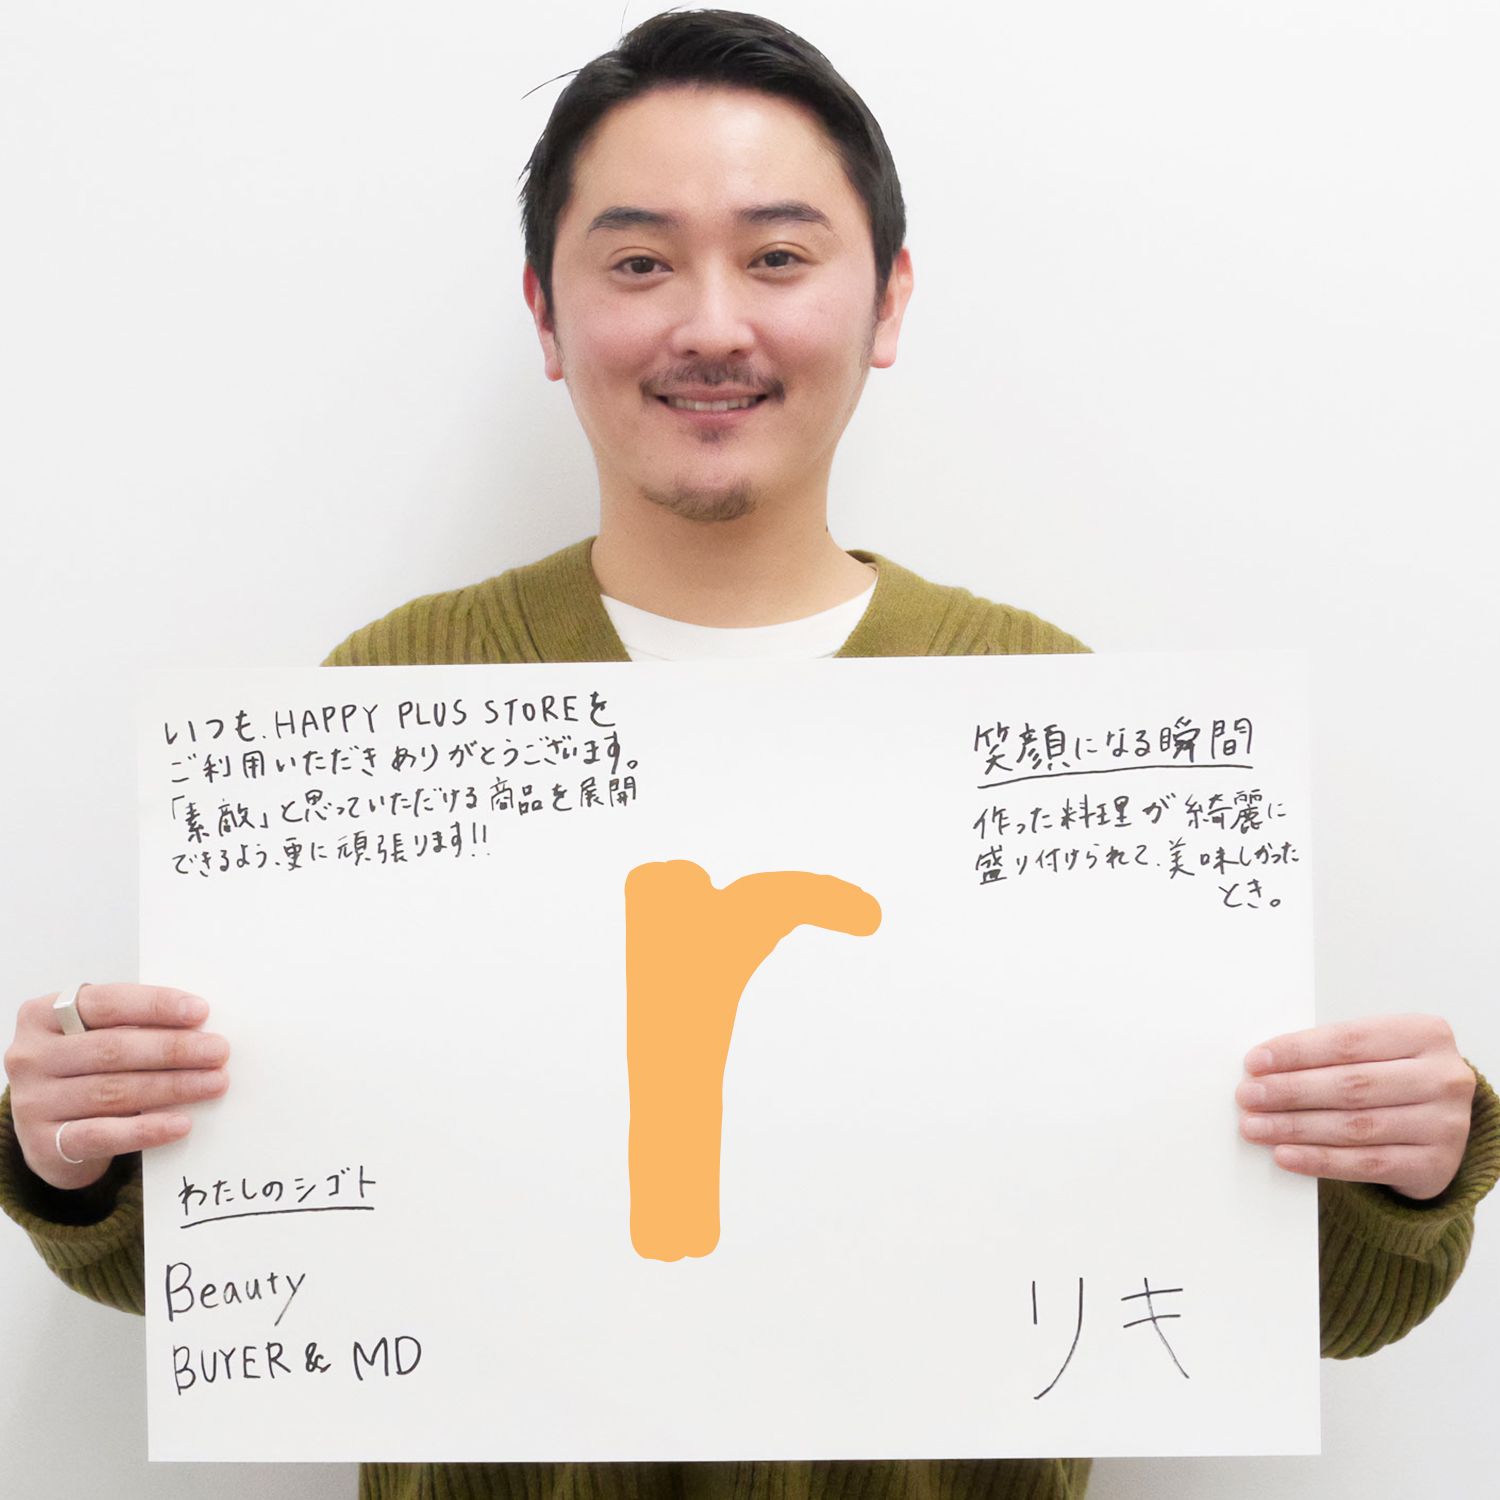 いつも、HAPPY PLUS STOREを
ご利用いただきありがとうございます。
「素敵」と思っていただける商品を展開
できるよう、更に頑張ります!!
笑顔になる瞬間
作った料理が綺麗に
盛り付けられて、美味しかった
とき。
r
わたしのシゴト
Beauty
BUYER & MD
リキ